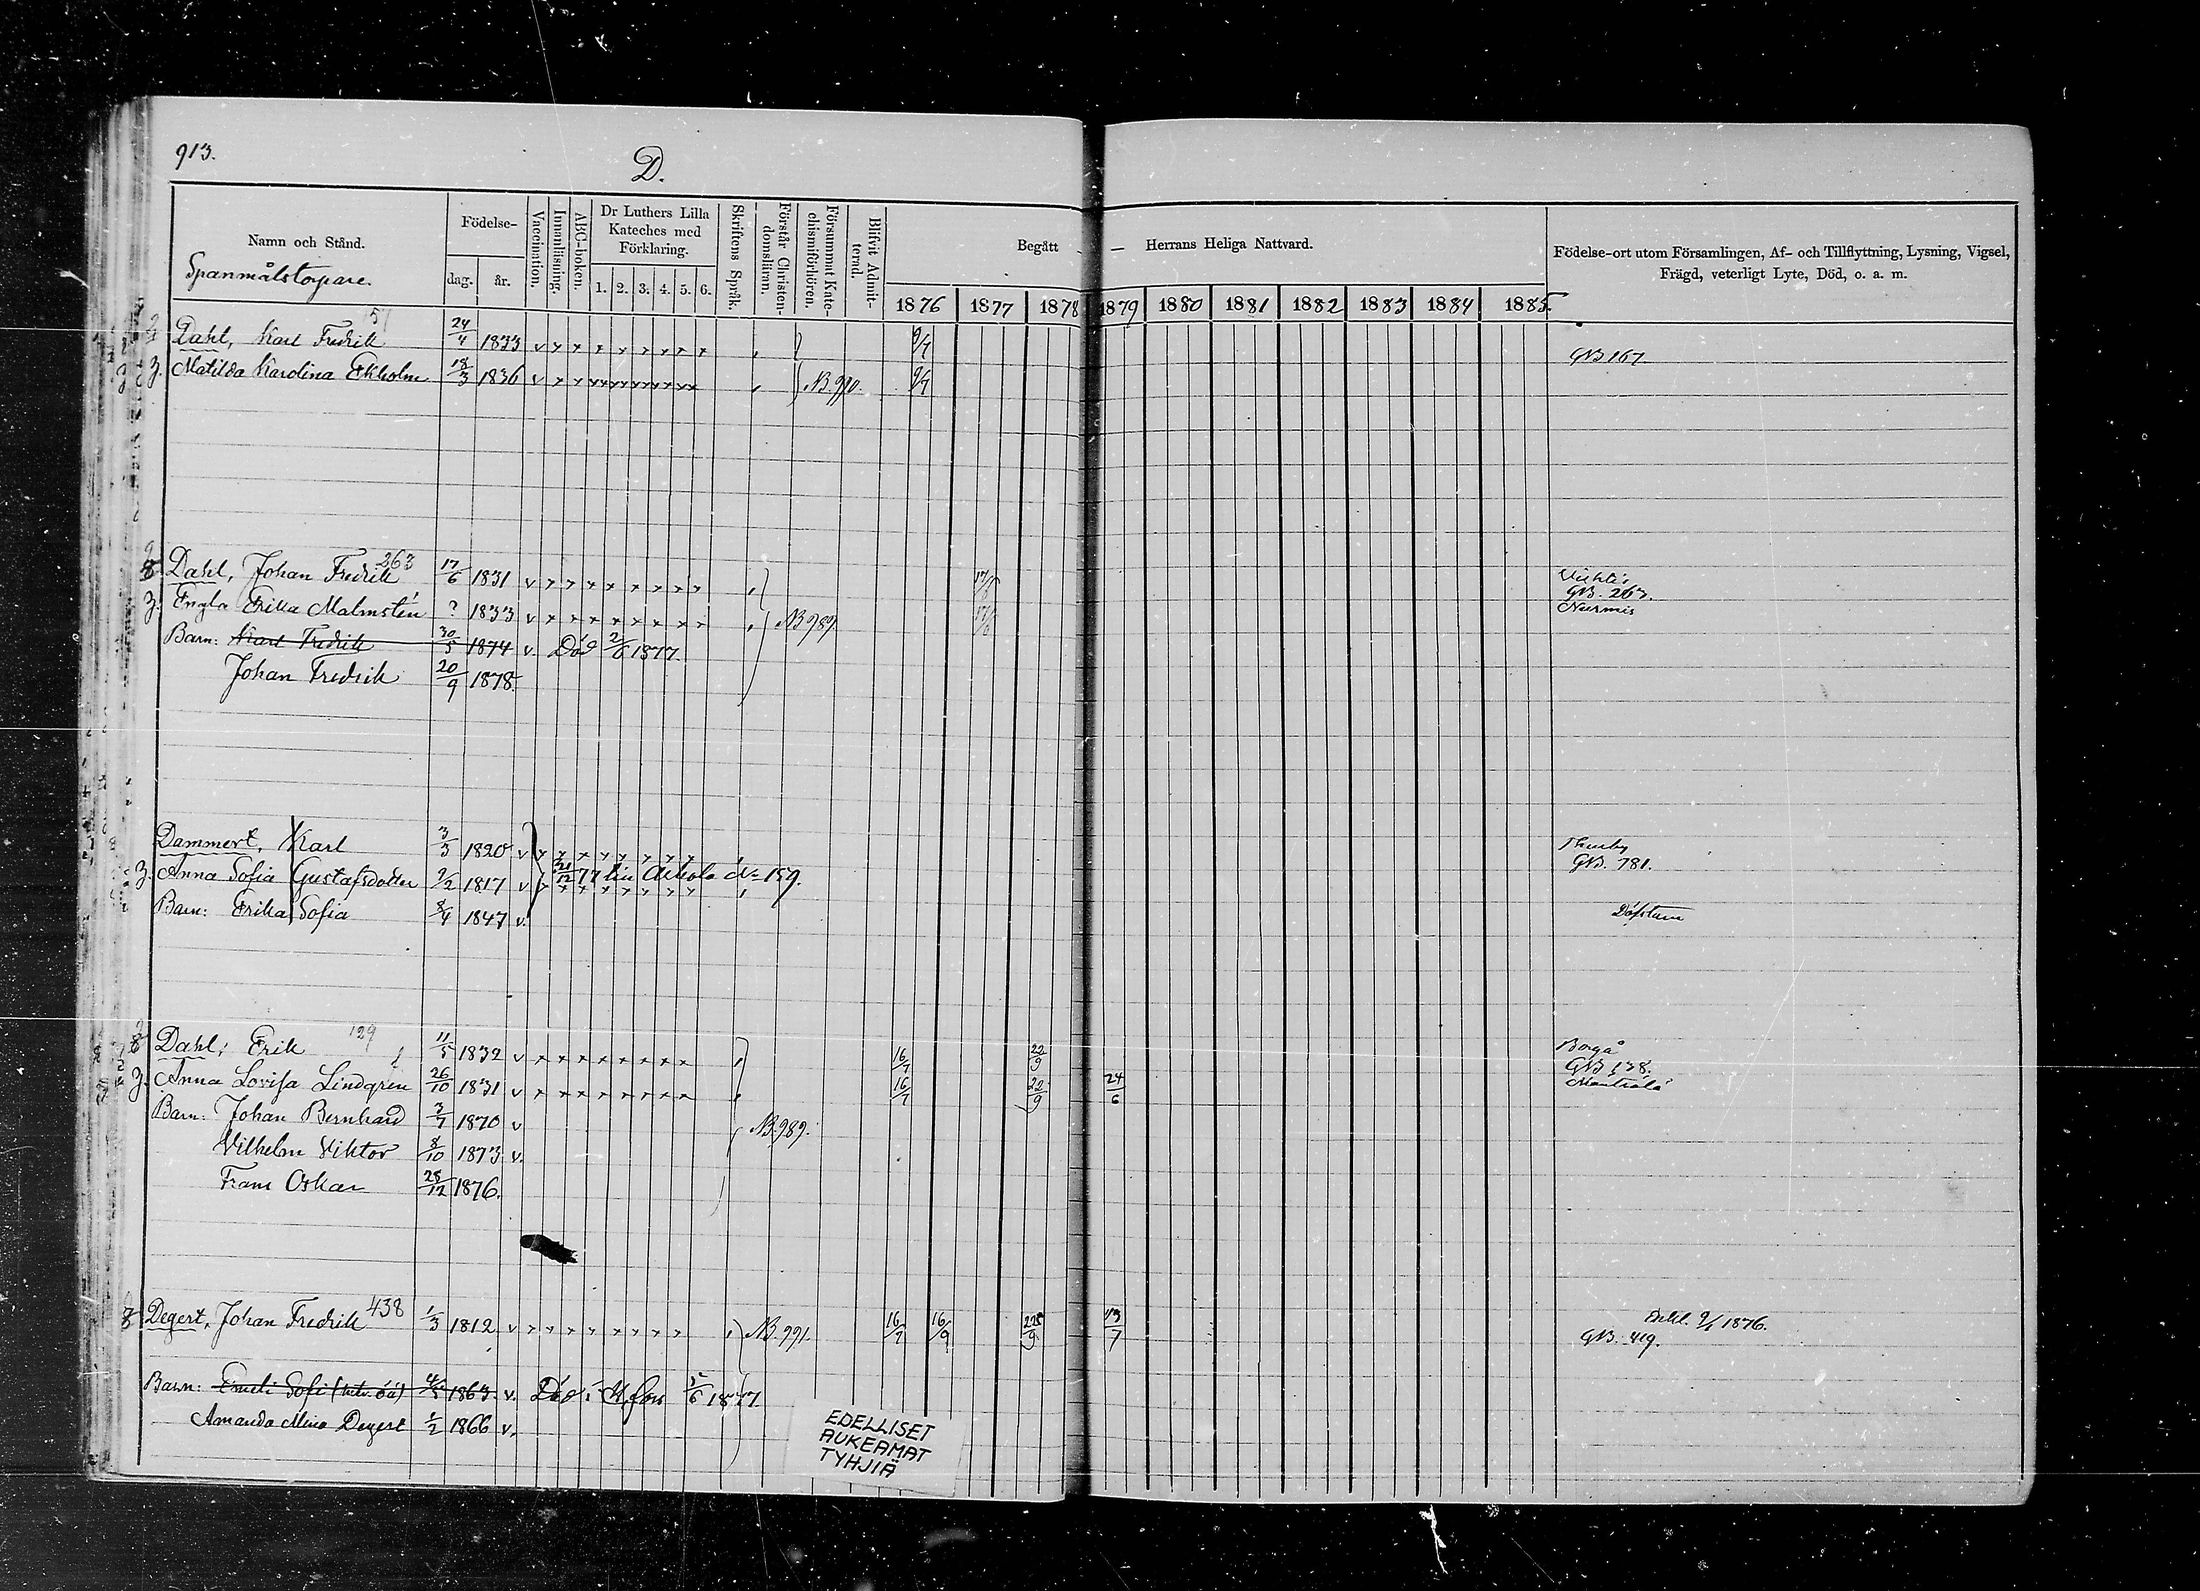 913.
D.
Namn och Stånd.
Spanmålstopare.
Födelse-
dag.
år.
Vaccination.
Innanläsning.
ABC-boken.
Dr Luthers Lilla
Kateches med
Förklaring.
1. 2. 3. 4. 5. 6.
Skriftens Språk.
Förstår Christen-
domsläran.
Försummat Kate-
chismiförhören.
Blifvit Admit-
terad.
Begått — Herrans Heliga Nattvard.
1876 1877 1878 1879 1880 1881 1882 1883 1884 1885.
Födelse-ort utom Församlingen, Af- och Tillflyttning, Lysning, Vigsel,
Frägd, veterligt Lyte, Död, o. a. m.
Dahl, Karl Fredrik 24/4 1833 v 9/7 GB 167.
Matilda Karolina Ekholm 18/3 1836 v NB. 990. 9/7
263
Dahl, Johan Fredrik 17/6 1831 v Vichtis
GB. 263.
Engla Erika Malmstén ? 1833 v NB 989 Nurmis
Barn: Karl Fredrik 30/5 1874 v. Död 2/6 1877.
Johan Fredrik 20/9 1878.
Dammert, Karl 3/3 1820 v Thusby
GB. 781.
Anna Sofia Gustafsdotter 2/2 1817 v 31/12 77 till Askola № 159.
Barn: Erika Sofia 8/4 1847 v. Döfstum
129
Dahl, Erik 11/5 1832 v 16/7 22/9 Borgå
GB 138.
Anna Lovisa Lindgren 26/10 1831 v 16/7 22/9 24/6 Mäntsälä
Barn: Johan Bernhard 3/7 1870 v NB. 989.
Vilhelm Viktor 8/10 1873 v.
Frans Oskar 28/12 1876.
438
Degert, Johan Fredrik 1/3 1812 v NB. 991. 16/7 16/9 9 13/7 Enkl. 1876.
GB. 419.
Barn: Emeli Sofi 1863. v. Död i 1877.
Amanda Mina Degert 1/2 1866 v.
EDELLISET
AUKEAMAT
TYHJIÄ